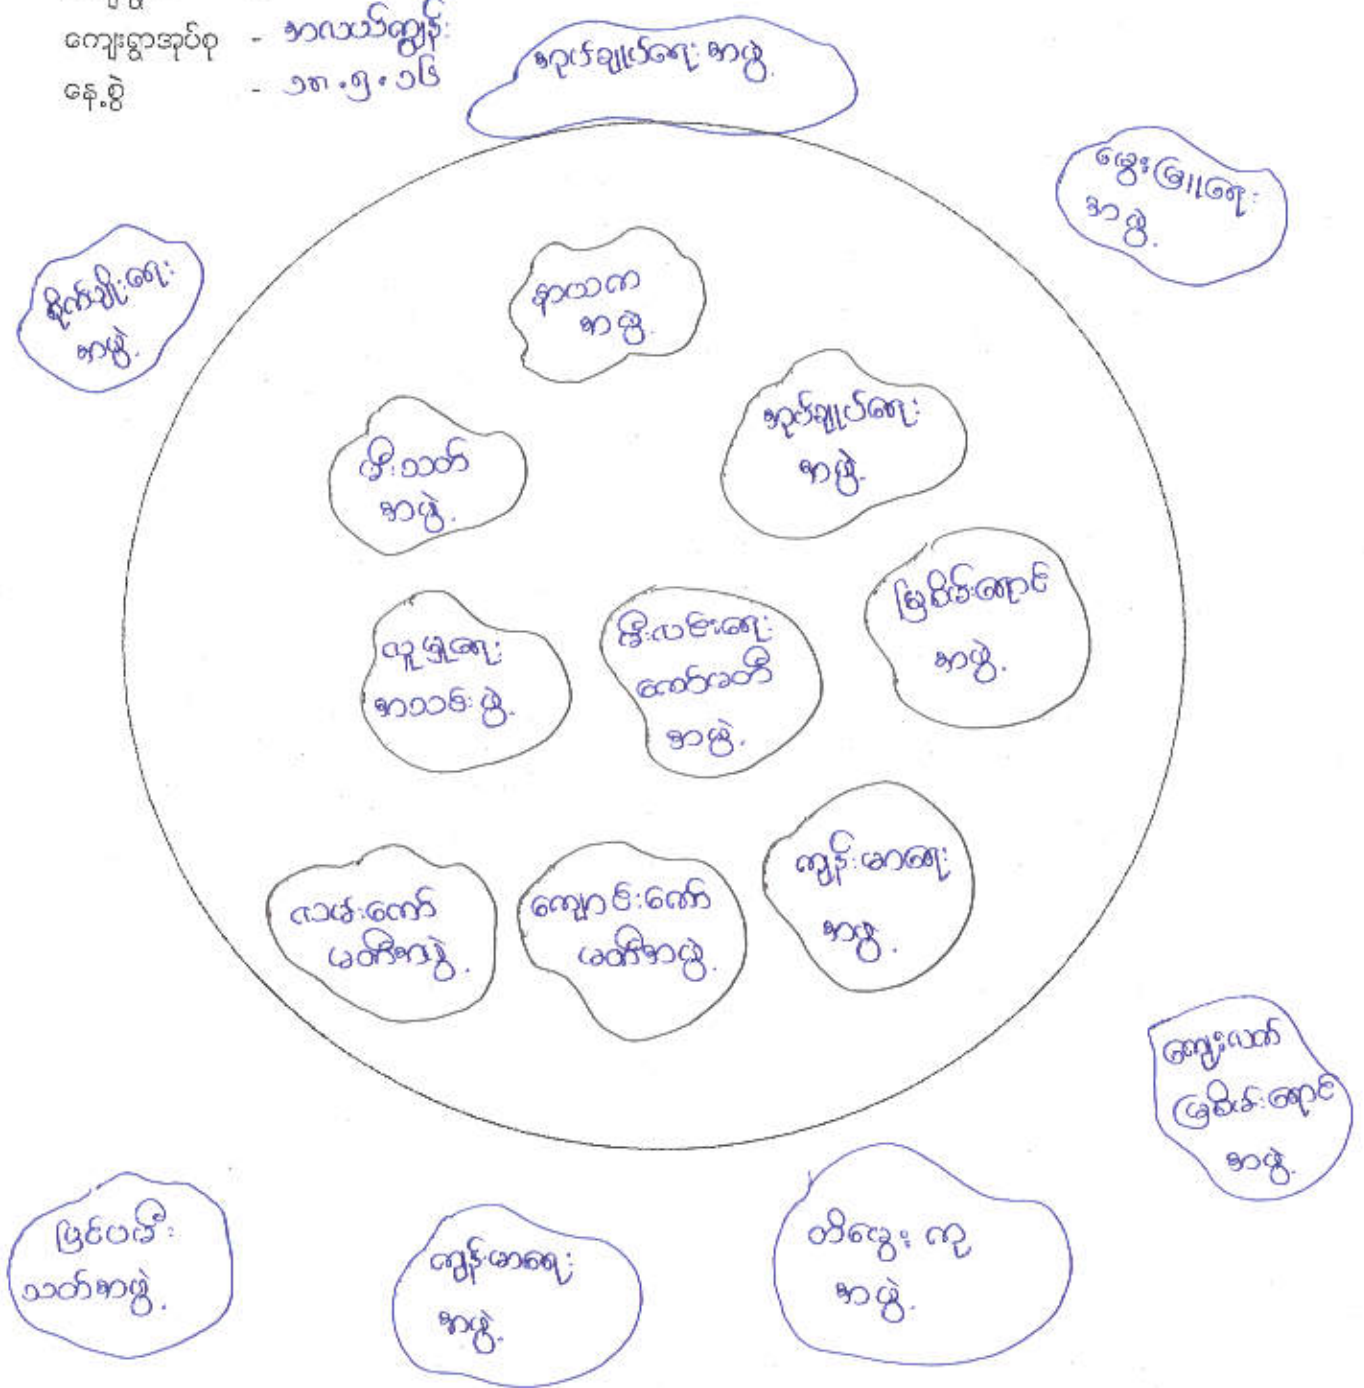 ကျေးရွာအုပ်စု - အလယ်ကျွန်း
နေ့စွဲ - ၁၈.၅.၁၆
အုပ်ချုပ်ရေး အဖွဲ့
မွေးမြူရေး
အဖွဲ့
စိုက်ပျိုးရေး
အဖွဲ့
နာယက
အဖွဲ့
အုပ်ချုပ်ရေး
အဖွဲ့
မီးသတ်
အဖွဲ့
မြစိမ်းရောင်
အဖွဲ့
လူမှုရေး
အသင်းဖွဲ့
မီးလင်းရေး
ကော်မတီ
အဖွဲ့
ကျန်းမာရေး
အဖွဲ့
လမ်းကော်
မတီအဖွဲ့
ကျောင်းကော်
မတီအဖွဲ့
ကျေးလက်
မြစိမ်းရောင်
အဖွဲ့
ပြင်ပမီး
သတ်အဖွဲ့
ကျန်းမာရေး
အဖွဲ့
တိမွေး ကု
အဖွဲ့